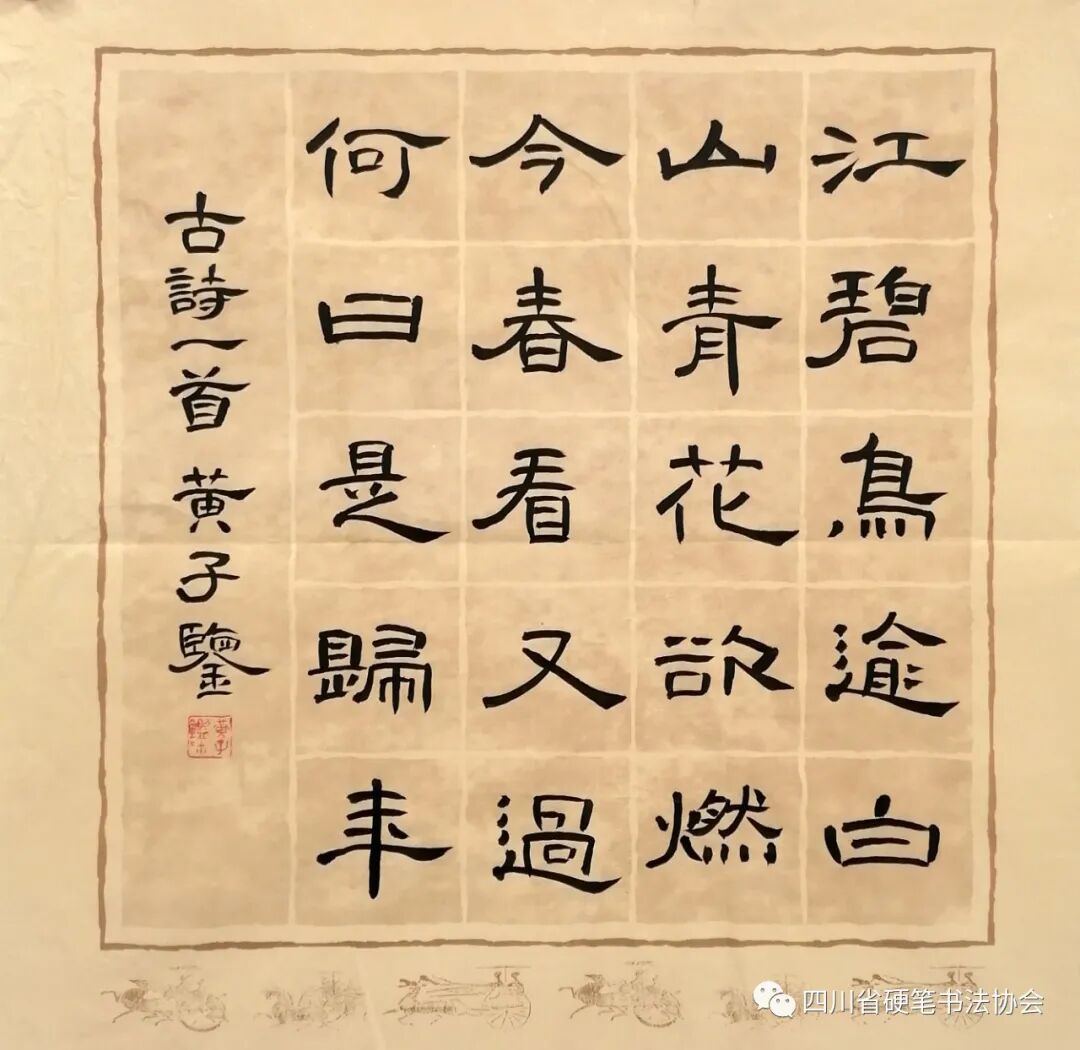 江碧鳥逾白
山青花欲燃
今春看又過
何日是歸年
古詩一首 黄子鑒
四川省硬笔书法协会